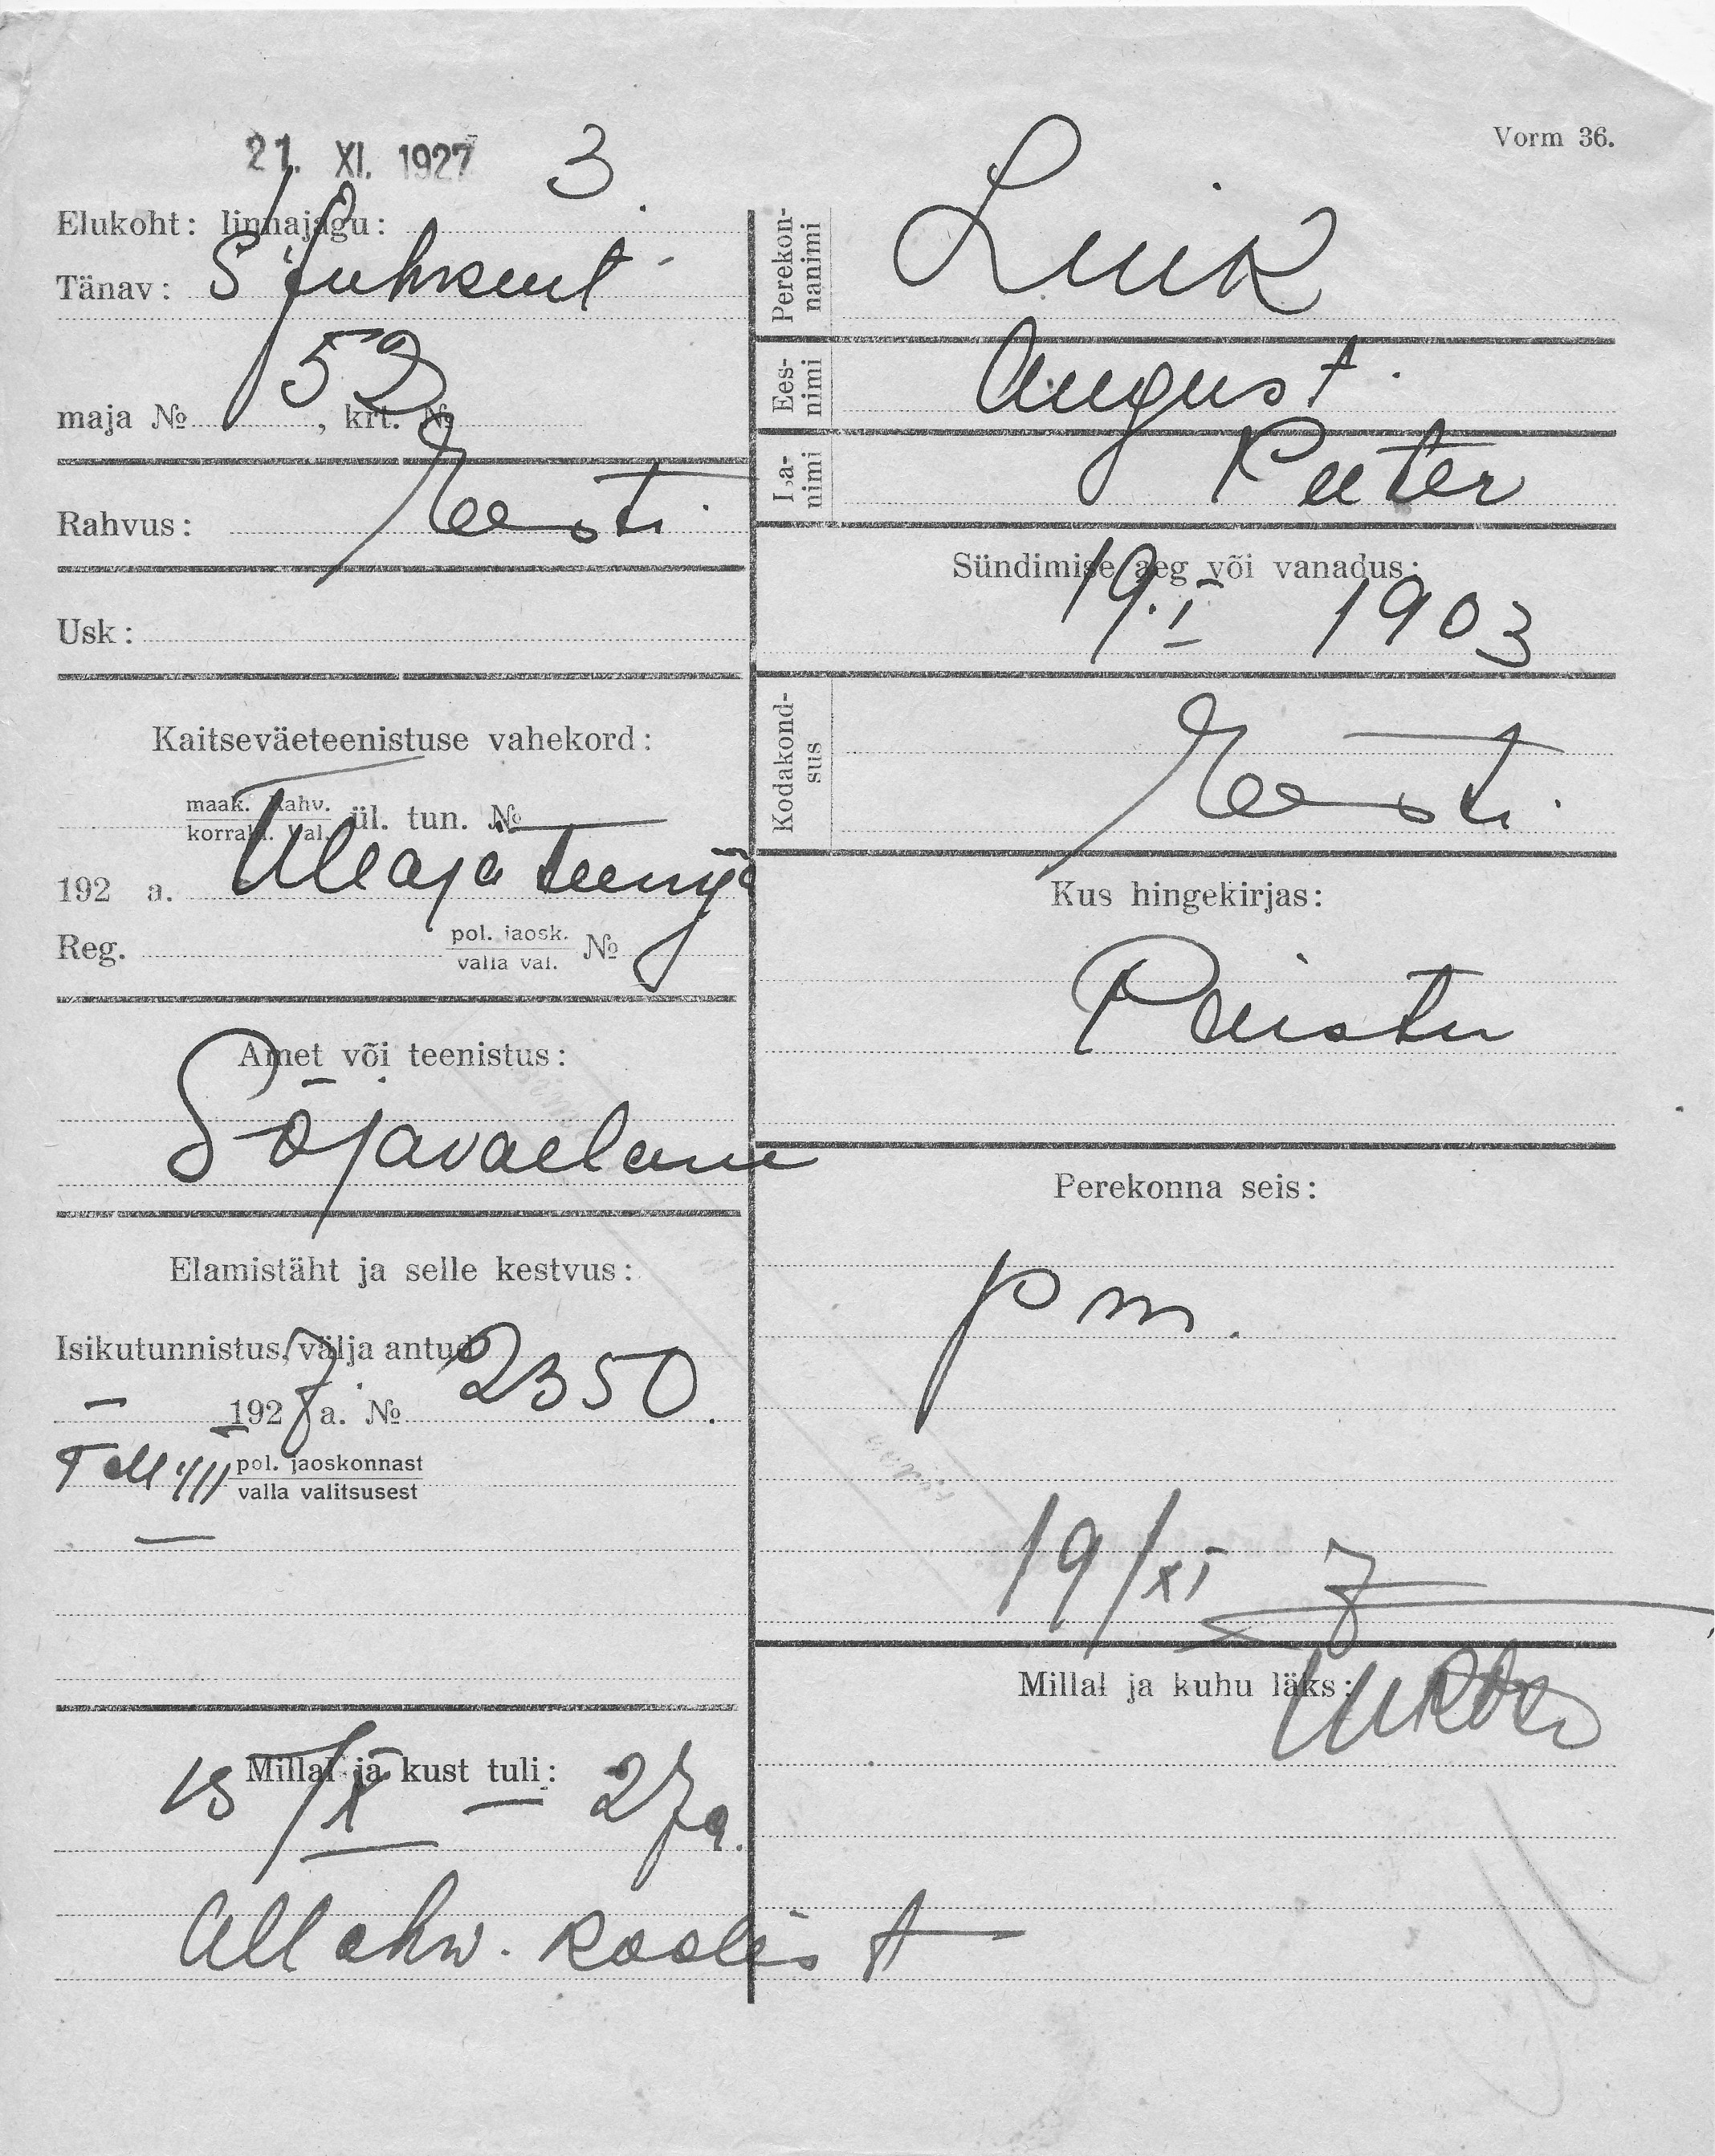 Vorm 36.
21. XI. 1927 3
Elukoht: linnajagu:
Tänav: S. Juhkent.
52
maja № , krt. №
Rahvus: Eesti.
Usk:
Kaitseväeteenistuse vahekord:
maak. Rahv.
korrald. Val. ül. tun. №
192 a. Üleaja teenija
Reg. pol. jaosk.
valla val. №
Amet või teenistus:
Sõjavaelane
Elamistäht ja selle kestvus:
Isikutunnistus, välja antud
— 1927 a. № 2350.
Tall. III pol. jaoskonnast
valla valitsusest
—
Millal ja kust tuli:
15/X — 27 a.
All ohw. koolist
Perekonnanimi
Luik
Eesnimi
August.
Isanimi
Peeter
Sündimise aeg või vanadus:
19.I 1903
Kodakondsus
Eesti.
Kus hingekirjas:
Paistu
Perekonna seis:
p m.
19/XI 7
Millal ja kuhu läks: